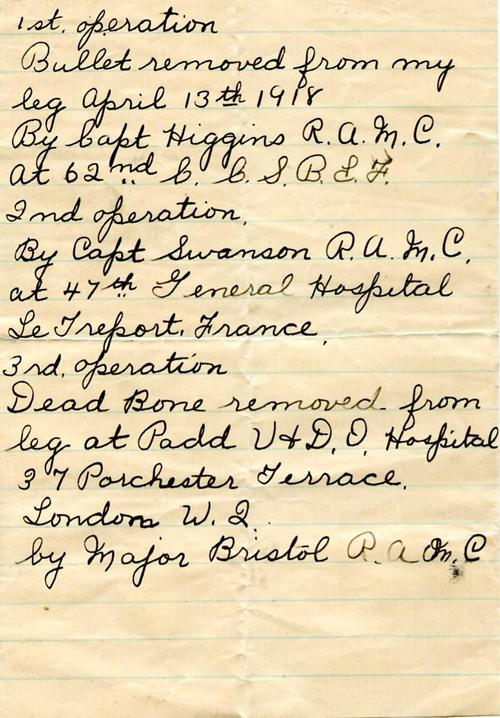 1st. operation
Bullet removed from my
leg April 13th 1918
By Capt Higgins R. A. M. C.
At 62nd C. C. S. B. E. F.
2nd operation.
By Capt Swanson R. A. M. C.
at 47th General Hospital
Le Treport. France.
3rd. operation
Dead Bone removed from
leg at Padd V & D. O. Hospital
37 Porchester Terrace.
London W. 2.
by Major Bristol R. A. M. C